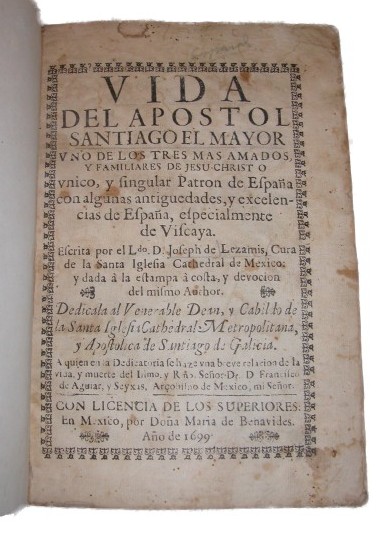 VIDA
DEL APOSTOL
SANTIAGO EL MAYOR
VNO DE LOS TRES MAS AMADOS,
Y FAMILIARES DE JESU-CHRISTO
vnico, y singular Patron de España
con algunas antiguedades, y excelen-
cias de España, especialmente
de Viscaya.
Escrita por el Ldo. D. Joseph de Lezamis, Cura
de la Santa Iglesia Cathedral de Mexico:
y dada à la estampa à costa, y devocion
del mismo Author.
Dedicala al Venerable Dean, y Cabildo de
la Santa Iglesia Cathedral Metropolitana,
y Apostolica de Santiago de Galicia.
A quien en la Dedicatoria se haze vna breve relacion de la
vida, y muerte del Ilmo, y Rmo. Señor Dr. D Francisco
de Aguiar, y Seyxas, Arçobispo de Mexico, mi Señor.
CON LICENCIA DE LOS SUPERIORES:
En Mexico, por Doña Maria de Benavides.
Año de 1699